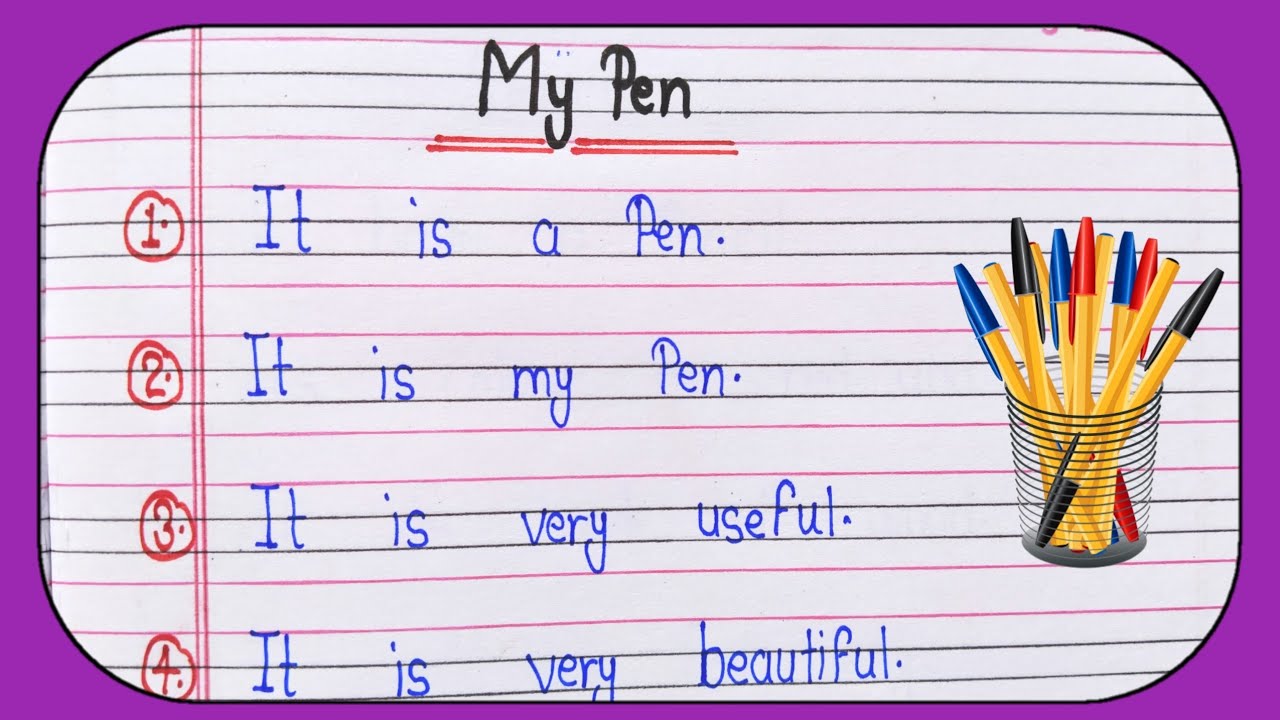 My Pen
1. It is a Pen.
2. It is my Pen.
3. It is very useful.
4. It is very beautiful.